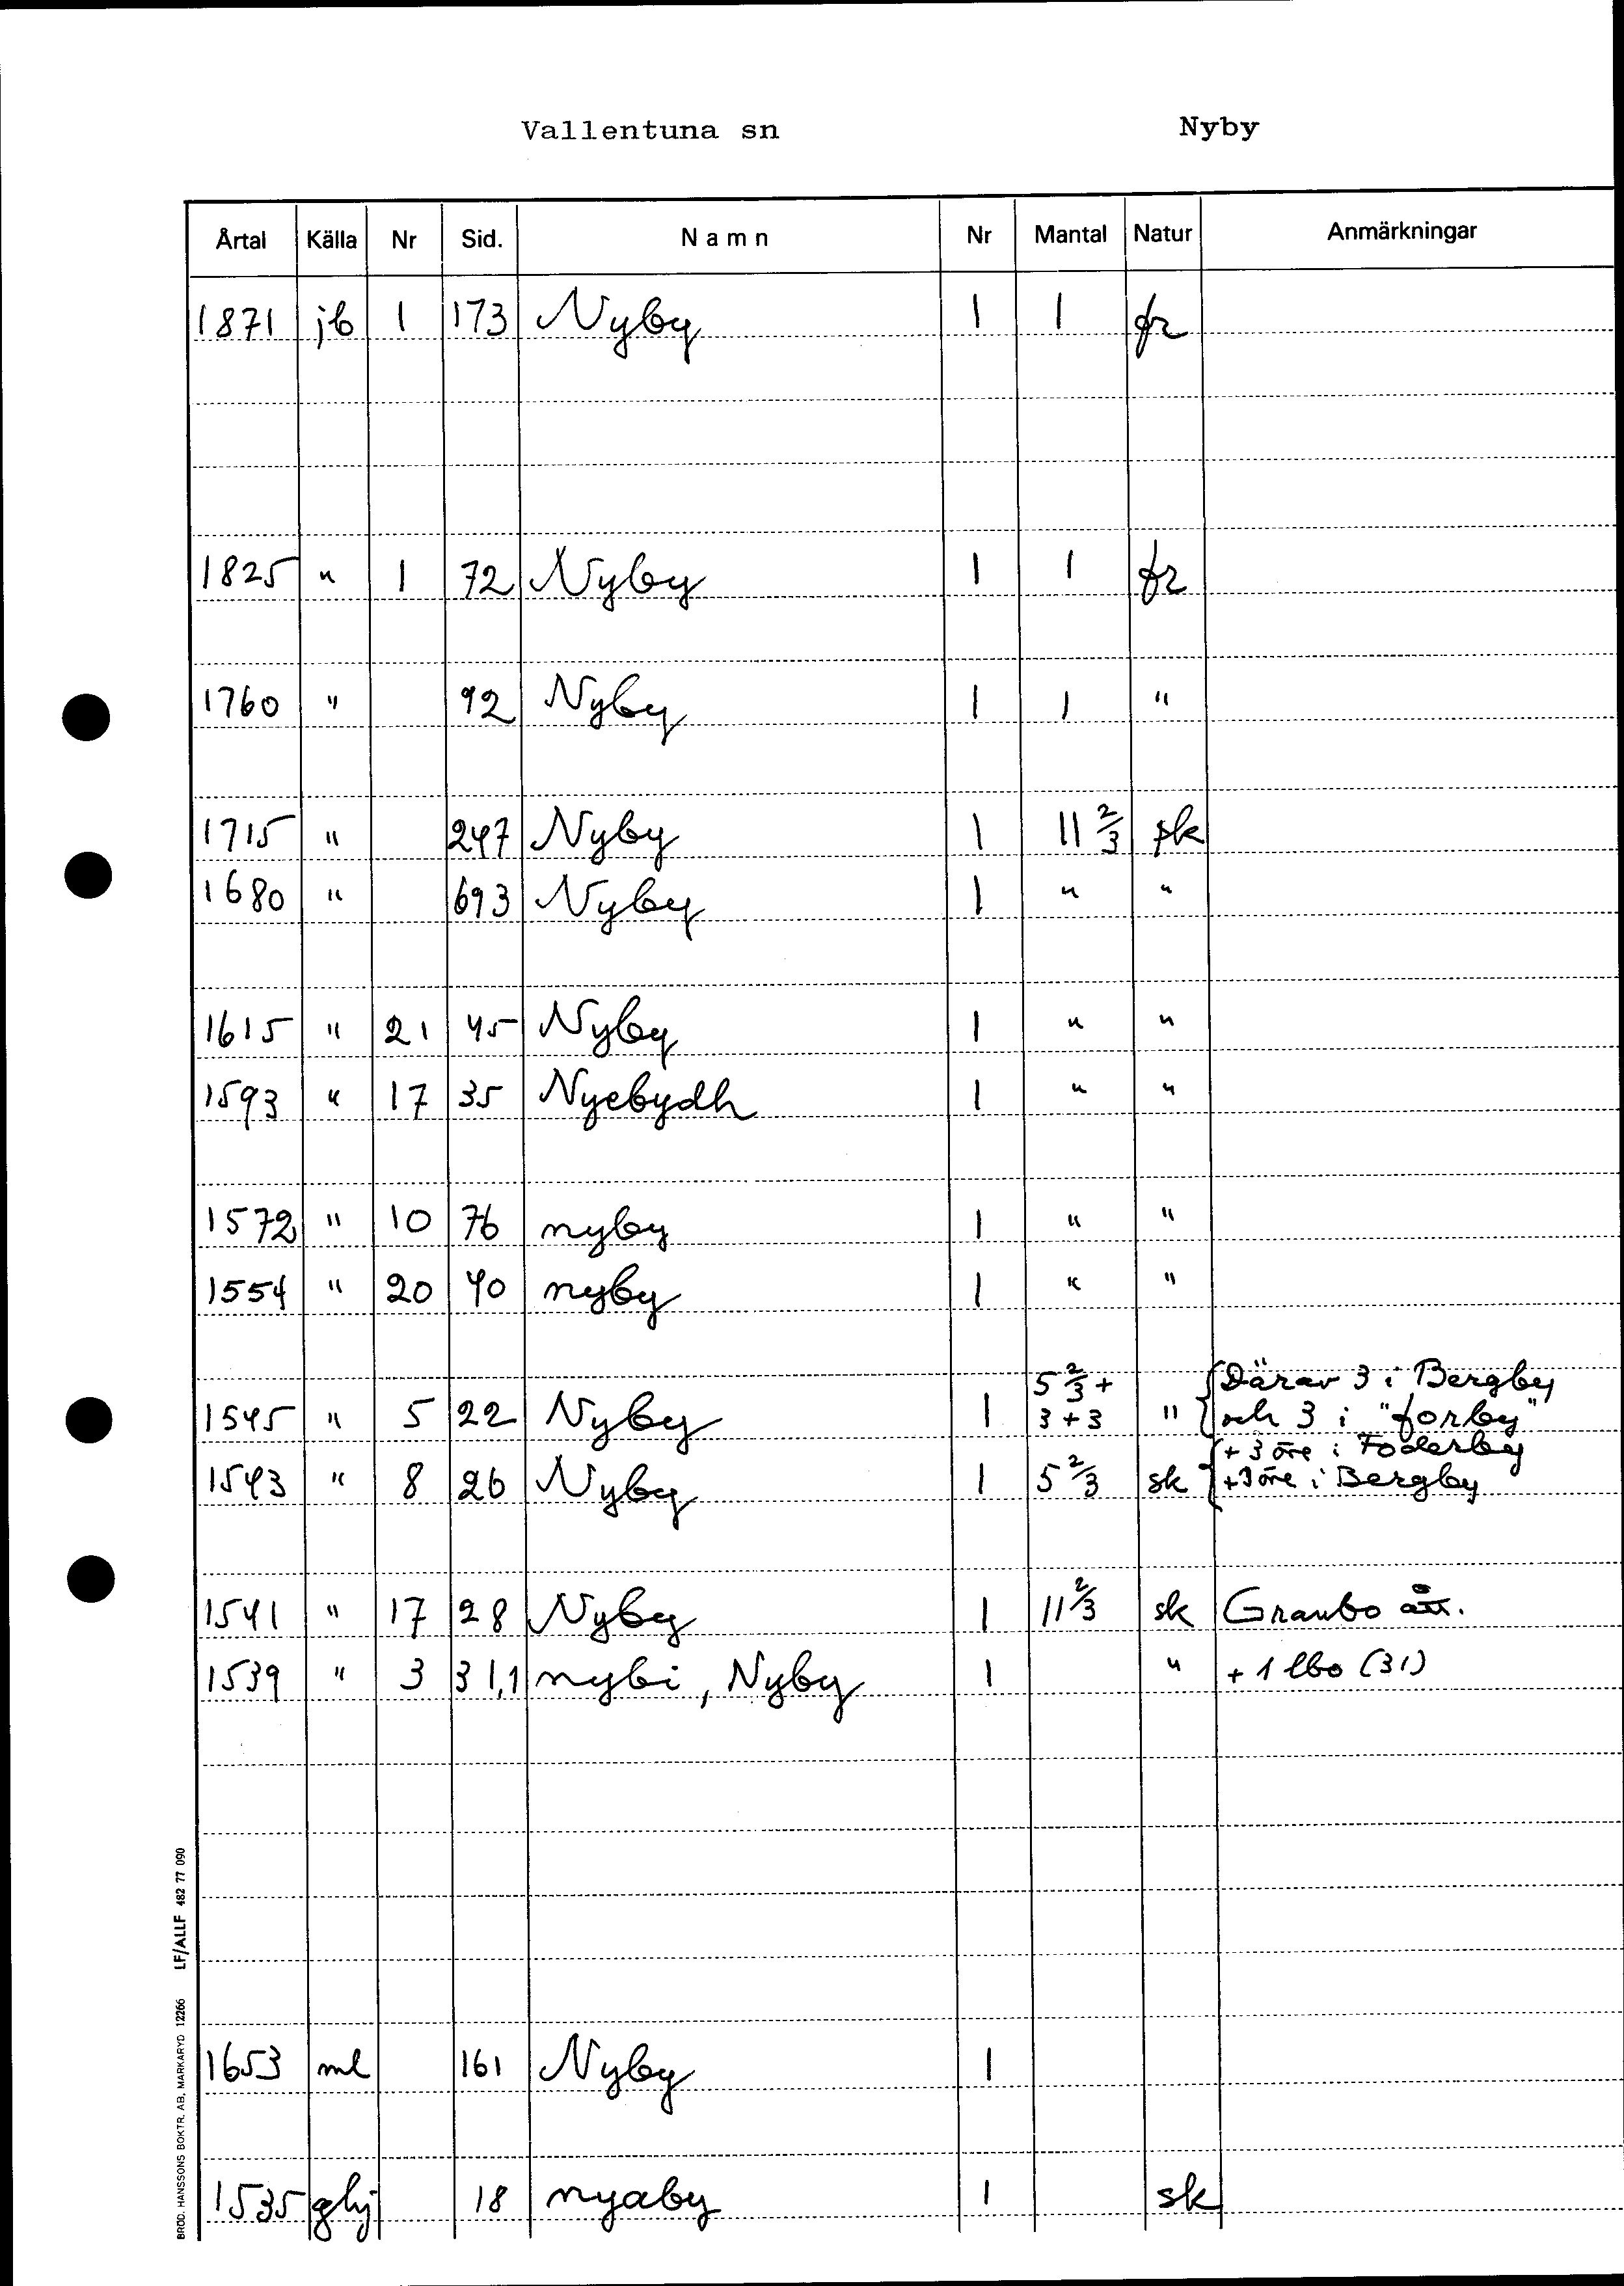 Vallentuna sn Nyby
Årtal Källa Nr Sid. Namn Nr Mantal Natur Anmärkningar
1871 jb 1 173 Nyby 1 1 fr
1825 " 1 72 Nyby 1 1 fr
1760 " 92 Nyby 1 1 "
1715 " 247 Nyby 1 11 2/3 sk
1680 " 693 Nyby 1 " "
1615 " 21 45 Nyby 1 " "
1593 " 17 35 Nyebydh 1 " "
1572 " 10 76 nyby 1 " "
1554 " 20 40 nyby 1 " "
5 2/3 + Därav 3 i Bergby
1545 " 5 22 Nyby 1 3+3 " och 3 i "forby"
+ 3 öre i Foderby
1543 " 8 26 Nyby 1 5 2/3 sk +3 öre i Bergby
1541 " 17 28 Nyby 1 11 2/3 sk Granbo
1539 " 3 31,1 nybi, Nyby 1 " + 1 lbo (31)
1653 ml 161 Nyby 1
1535 ghj 18 nyaby 1 sk
BRÖD. HANSSONS BOKTR. AB, MARKARYD 12266 LF/ALLF 482 77 090